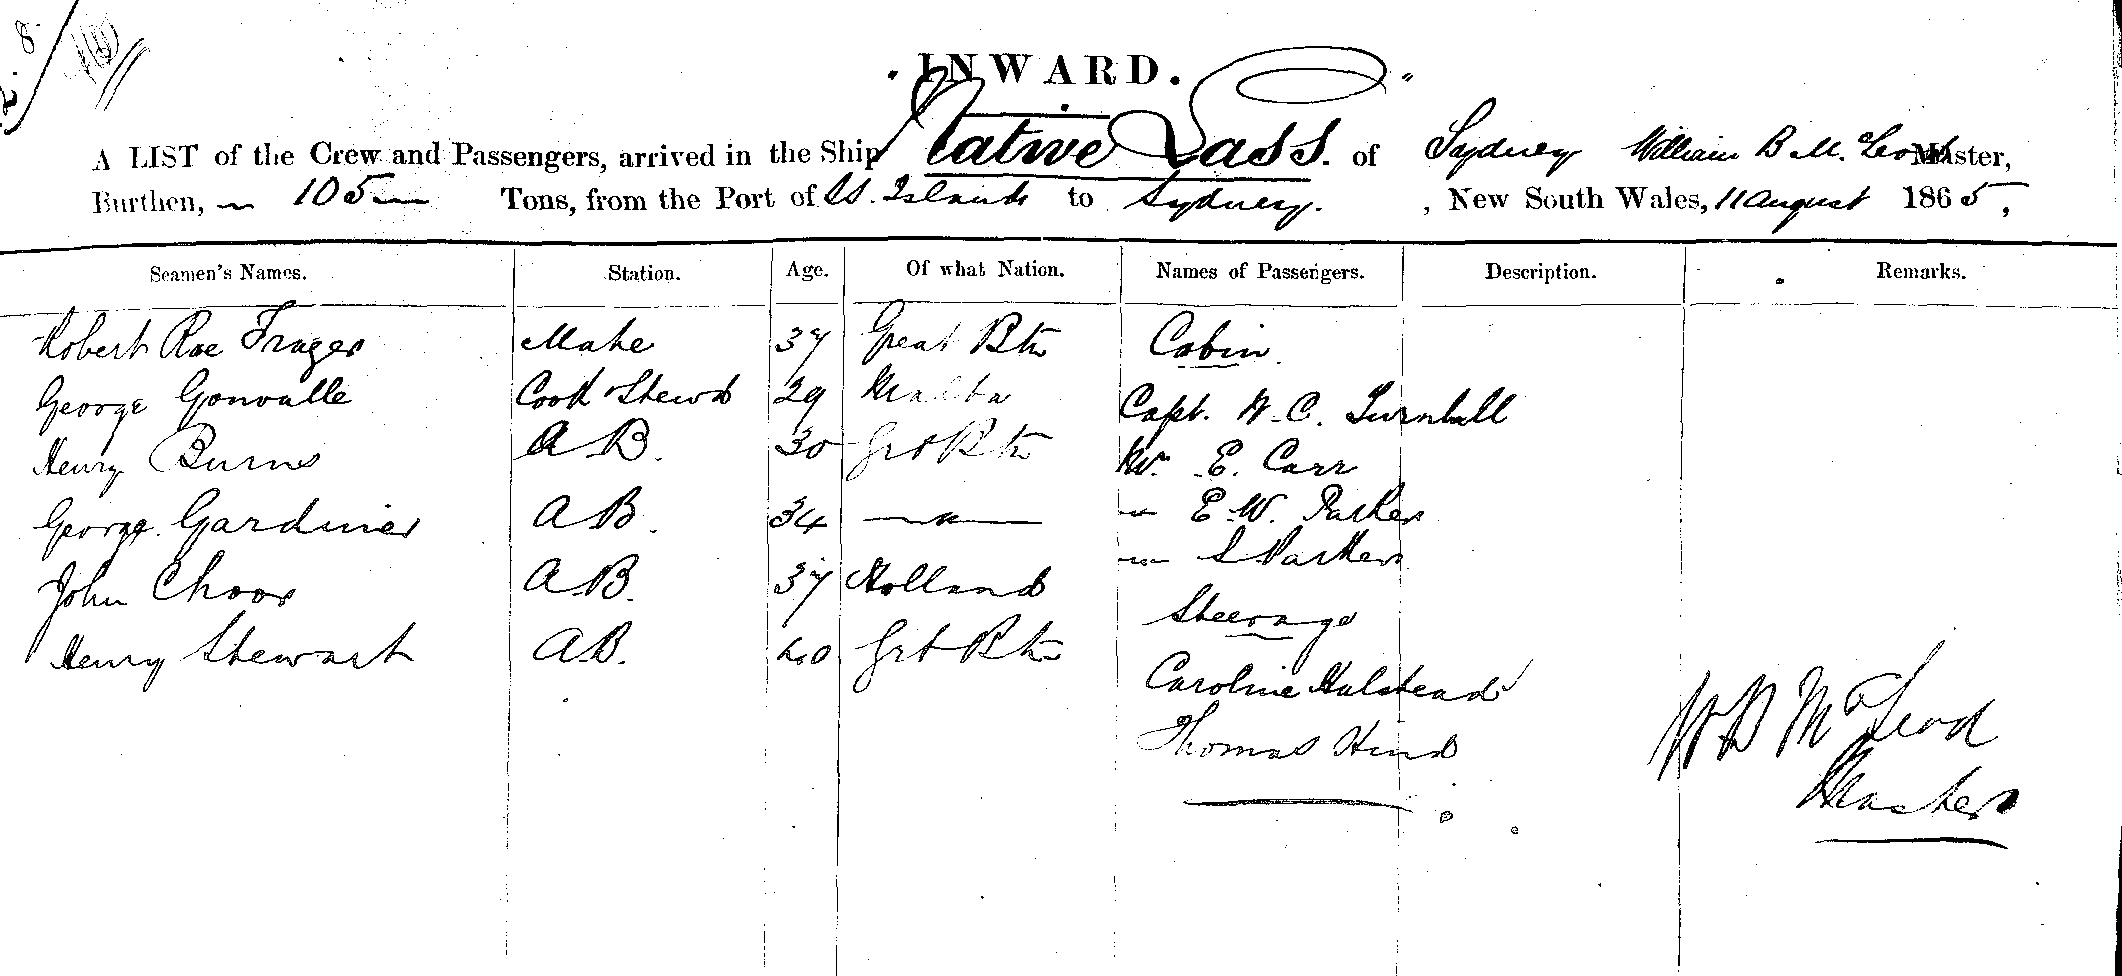 INWARD.
A LIST of the Crew and Passengers, arrived in the Ship Native Lass. of Sydney William B McLeod Master,
Burthen, 105 Tons, from the Port of S. S. Islands to Sydney. , New South Wales, 11 August 1865,
Seamen's Names. Station. Age. Of what Nation. Names of Passengers. Description. Remarks.
Robert Roe Frazer Mate 37 Great Btn Cabin.
George Gonvalle Cook Stewd 29 Malta Capt. W. C. Turnbull
Henry Burns AB. 30 Grt Btn Mr. E. Carr
George Gardiner AB. 34 — " — " E. W. Parker
John Choor AB. 37 Holland " S Parker
Steerage
Henry Stewart AB. 40 Grt Btn
Caroline Halstead
Thomas Hind
W B McLeod
Master